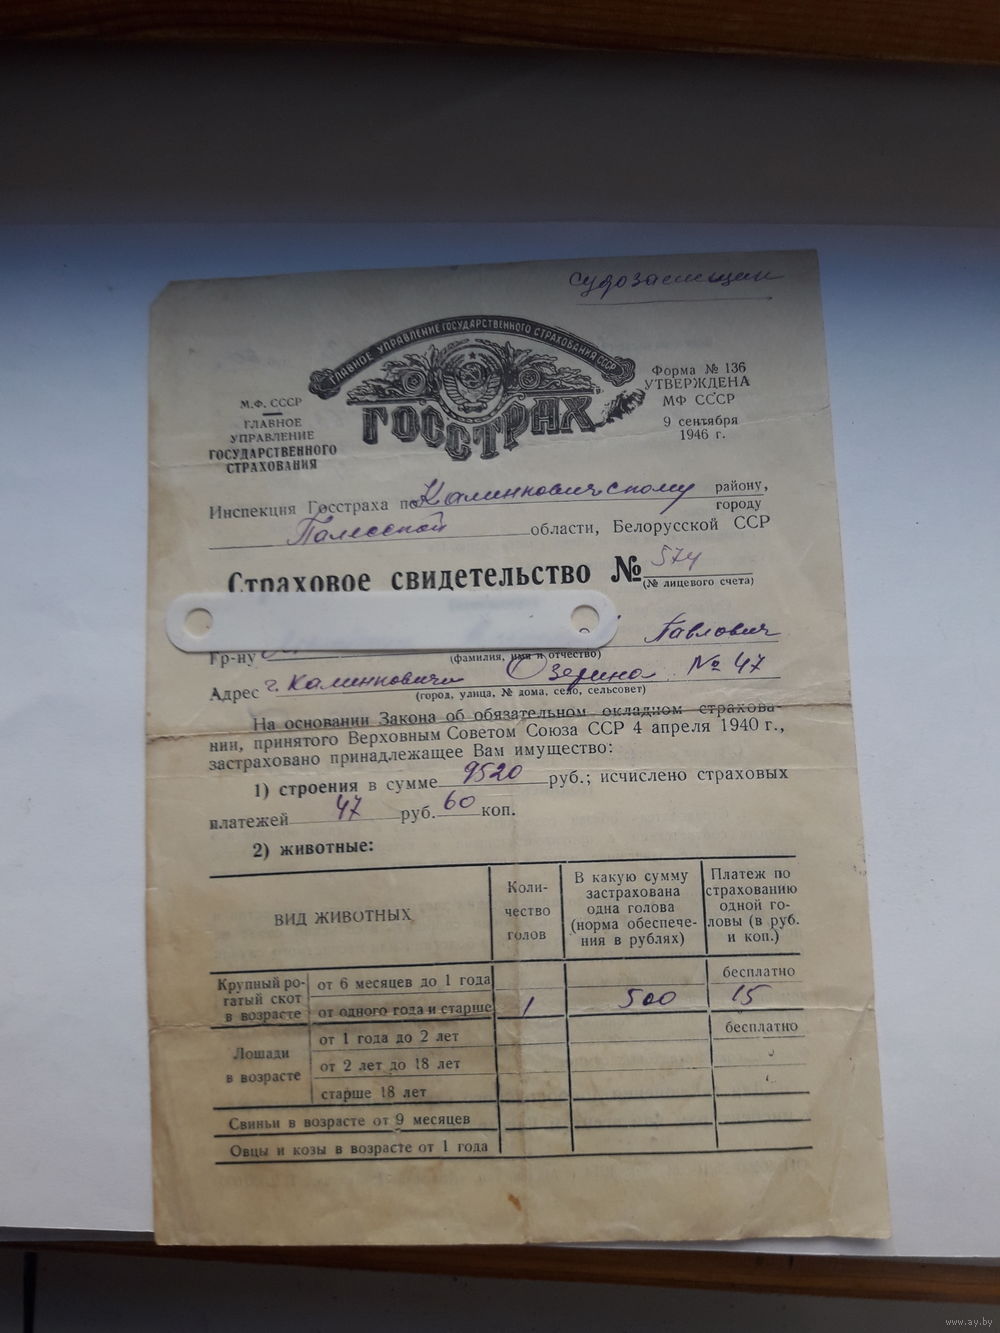 ГЛАВНОЕ УПРАВЛЕНИЕ ГОСУДАРСТВЕННОГО СТРАХОВАНИЯ СССР
ГОССТРАХ
М.Ф. СССР
ГЛАВНОЕ
УПРАВЛЕНИЕ
ГОСУДАРСТВЕННОГО
СТРАХОВАНИЯ
Форма № 136
УТВЕРЖДЕНА
МФ СССР
9 сентября
1946 г.
Инспекция Госстраха по Калинковичскому району,
городу
Полесской области, Белорусской ССР
Страховое свидетельство № 574
(№ лицевого счета)
Гр-ну Павлович
(фамилия, имя и отчество)
Адрес г. Калинковичи Озерина № 47
(город, улица, № дома, село, сельсовет)
На основании Закона об обязательном окладном страхова-
нии, принятого Верховным Советом Союза ССР 4 апреля 1940 г.,
застраховано принадлежащее Вам имущество:
1) строения в сумме 9520 руб.; исчислено страховых
платежей 47 руб. 60 коп.
2) животные:
ВИД ЖИВОТНЫХ
Коли-
чество
голов
В какую сумму
застрахована
одна голова
(норма обеспече-
ния в рублях)
Платеж по
страхованию
одной го-
ловы (в руб.
и коп.)
Крупный ро-
гатый скот
в возрасте
от 6 месяцев до 1 года бесплатно
от одного года и старше 1 500 15
Лошади
в возрасте
от 1 года до 2 лет бесплатно
от 2 лет до 18 лет
старше 18 лет
Свиньи в возрасте от 9 месяцев
Овцы и козы в возрасте от 1 года
www.ay.by